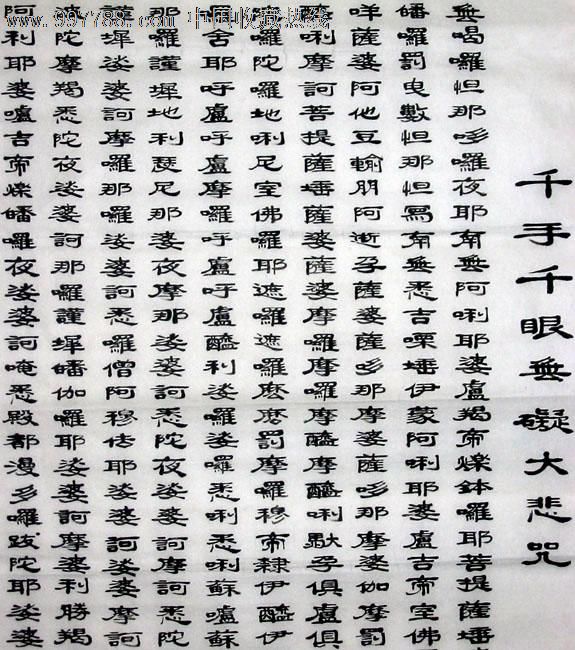 www.997788.com 中国收藏热线
千手千眼無礙大悲咒
無喝囉怛那哆囉夜耶南無阿唎耶婆盧羯帝爍鉢囉耶菩提薩埵
皤囉罰曳數怛那怛寫南無悉吉嘌埵伊蒙阿唎耶婆盧吉帝室佛
咩薩婆阿他豆輸朋阿逝孕薩婆薩哆那摩婆薩哆那摩婆伽摩罰
唎摩訶菩提薩埵薩婆薩婆摩囉摩囉摩醯摩醯唎馱孕俱盧俱
囉陀囉地唎尼室佛囉耶遮囉遮囉麼麼罰摩囉穆帝隸伊醯伊
舍耶呼盧呼盧摩囉呼盧呼盧醯利娑囉娑囉悉唎悉唎蘇嚧蘇
那囉謹墀地利瑟尼那婆夜摩那娑婆訶悉陀夜娑婆訶摩訶悉陀
謹墀娑婆訶摩囉那囉娑婆訶悉囉僧阿穆佉耶娑婆訶娑婆摩訶
波陀摩羯悉陀夜娑婆訶那囉謹墀皤伽囉耶娑婆訶摩婆利勝羯
阿利耶婆嚧吉帝爍皤囉夜娑婆訶唵悉殿都漫多囉跋陀耶娑婆